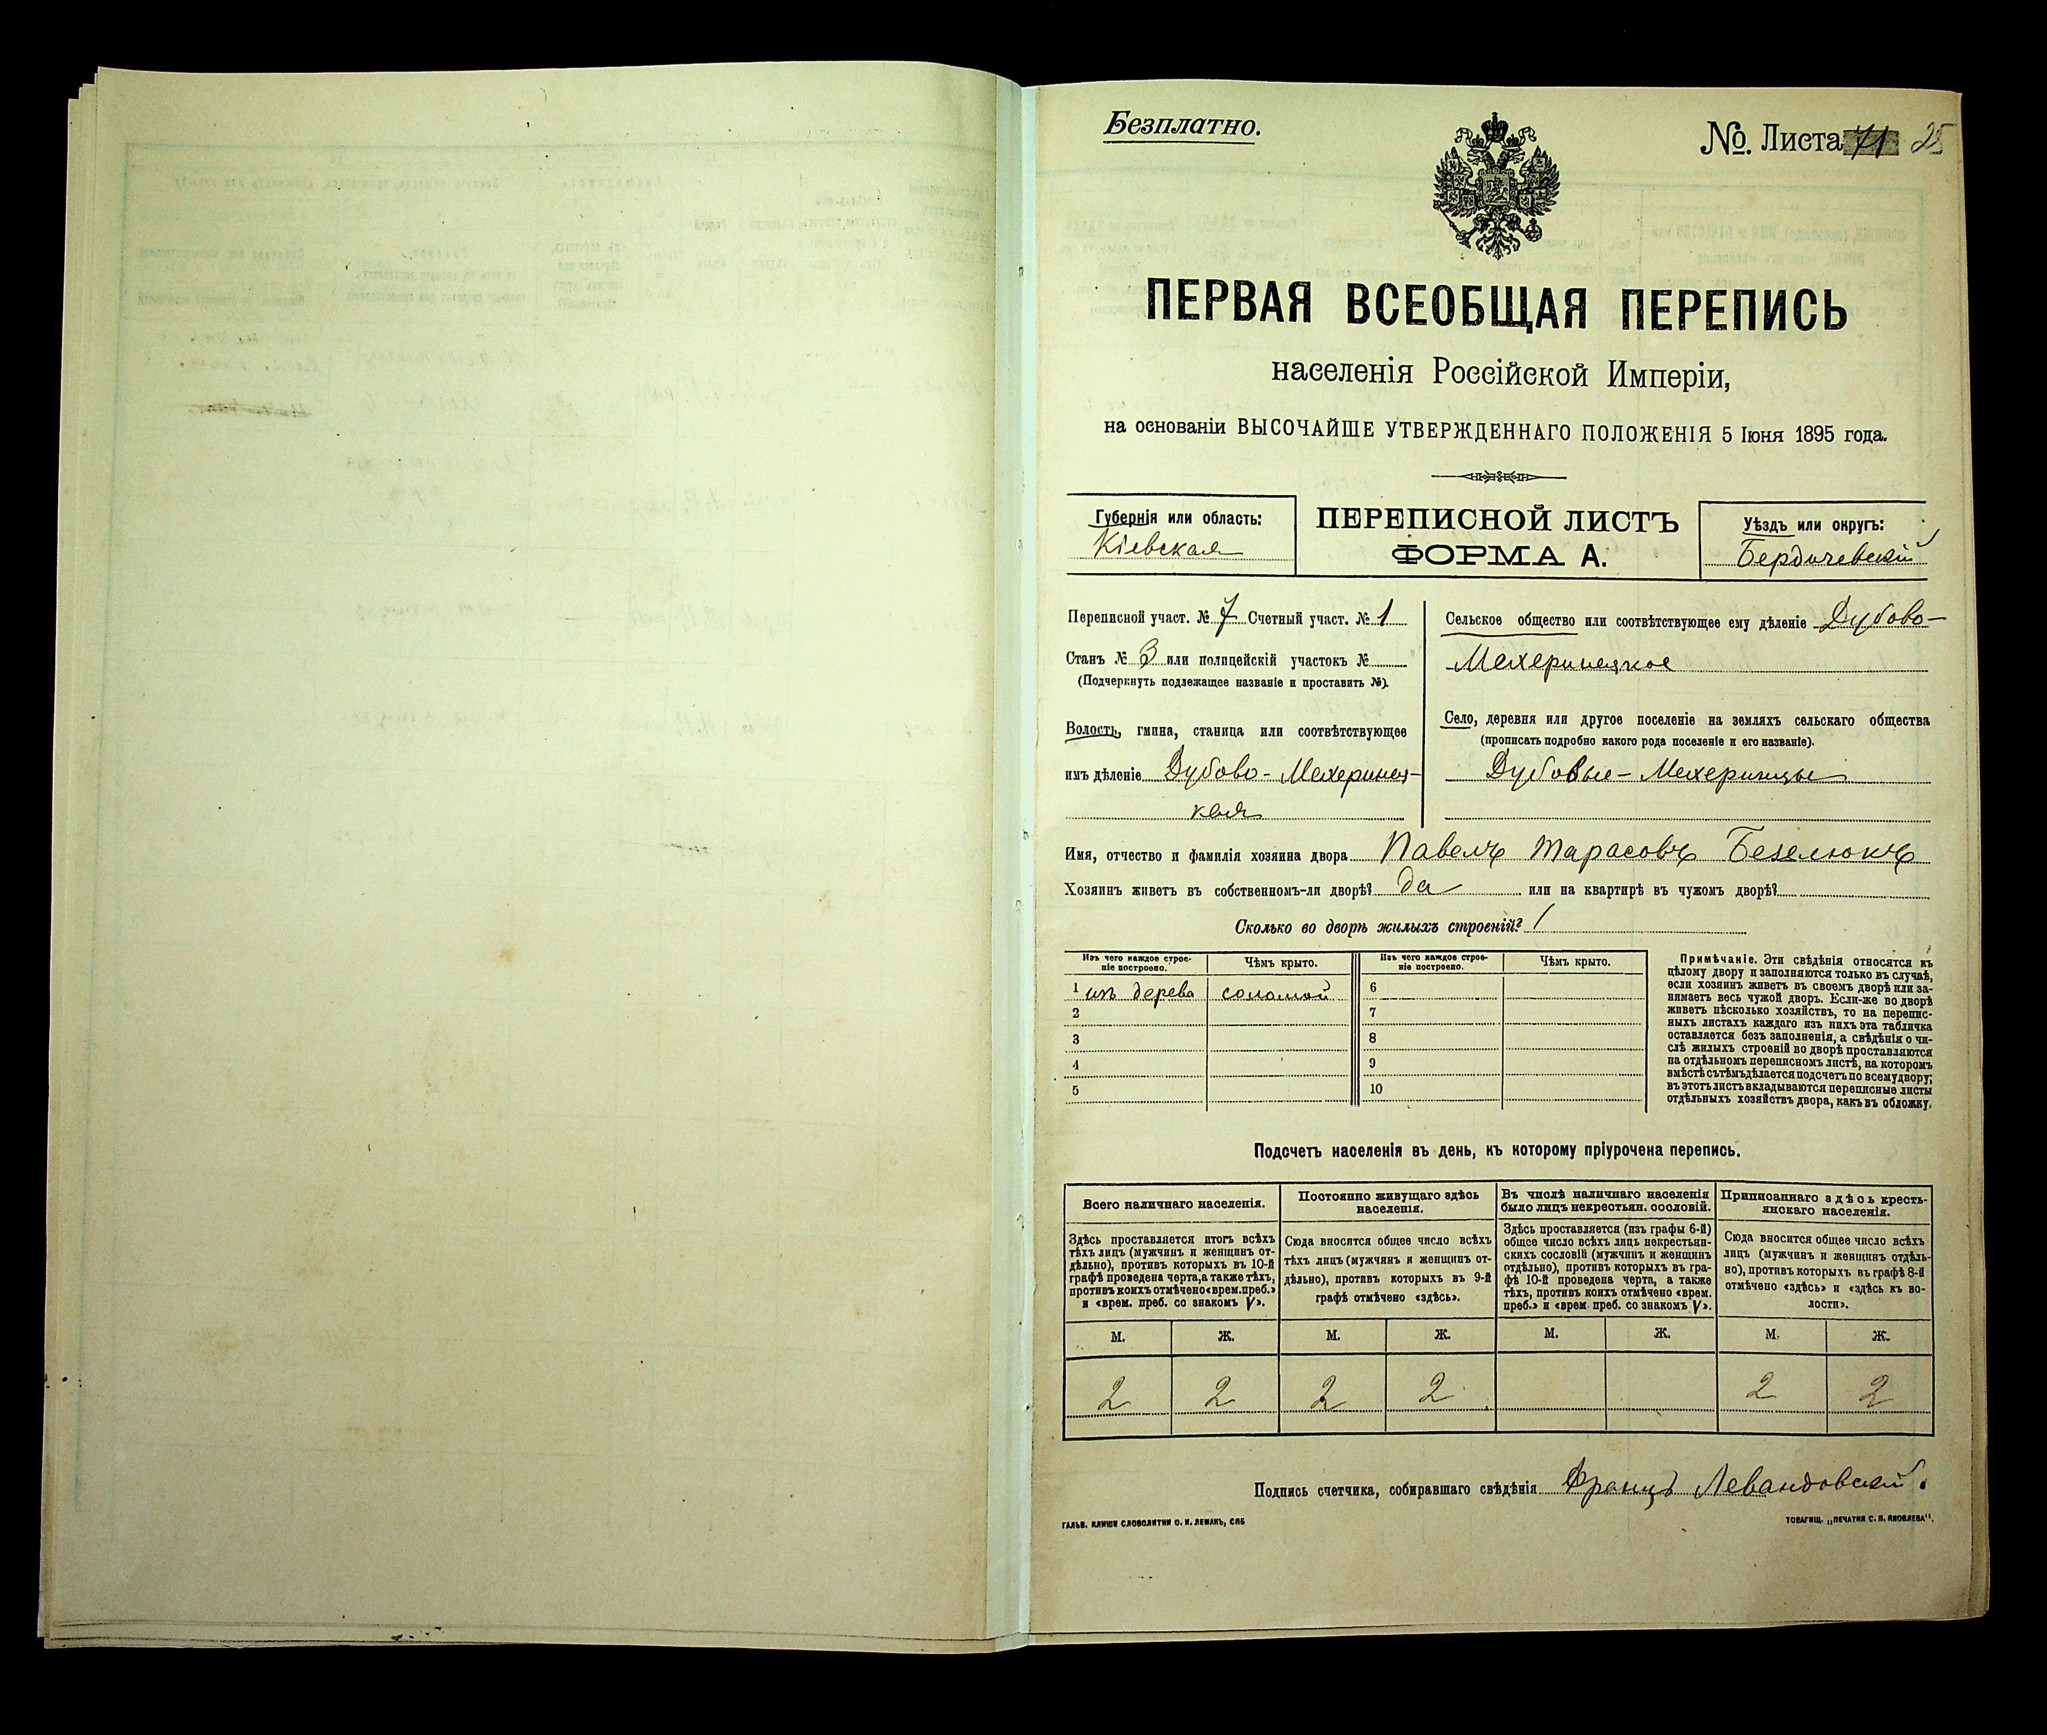 Безплатно.
№. Листа 71 25
ПЕРВАЯ ВСЕОБЩАЯ ПЕРЕПИСЬ
населенія Россійской Имперіи,
на основаніи ВЫСОЧАЙШЕ УТВЕРЖДЕННАГО ПОЛОЖЕНІЯ 5 Іюня 1895 года.
Губернія или область:
Кіевская
ПЕРЕПИСНОЙ ЛИСТЪ
ФОРМА А.
Уѣздъ или округъ:
Бердичевскій
Переписной участ. № 7 Счетный участ. № 1
Станъ № 3 или полицейскій участокъ №
(Подчеркнуть подлежащее названіе и проставить №).
Волость, гмина, станица или соотвѣтствующее
имъ дѣленіе Дубово-Мехеринец-
кая
Сельское общество или соотвѣтствующее ему дѣленіе Дубово-
Мехеринецкое
Село, деревня или другое поселеніе на земляхъ сельскаго общества
(прописать подробно какого рода поселеніе и его названіе).
Дубовые-Мехеринцы
Имя, отчество и фамилія хозяина двора Павелъ Тарасовъ Безелюкъ
Хозяинъ живетъ въ собственномъ-ли дворѣ? да или на квартирѣ въ чужомъ дворѣ?
Сколько во дворѣ жилыхъ строеній? 1
Изъ чего каждое строе-
ніе построено.
Чѣмъ крыто.
Изъ чего каждое строе-
ніе построено.
Чѣмъ крыто.
1 изъ дерева соломой 6
2 7
3 8
4 9
5 10
Примѣчаніе. Эти свѣдѣнія относятся къ
цѣлому двору и заполняются только въ случаѣ,
если хозяинъ живетъ въ своемъ дворѣ или за-
нимаетъ весь чужой дворъ. Если-же во дворѣ
живетъ нѣсколько хозяйствъ, то на перепис-
ныхъ листахъ каждаго изъ нихъ эта табличка
оставляется безъ заполненія, а свѣдѣнія о чи-
слѣ жилыхъ строеній во дворѣ проставляются
на отдѣльномъ переписномъ листѣ, на которомъ
вмѣстѣ съ тѣмъ дѣлается подсчетъ по всему двору;
въ этотъ листъ вкладываются переписные листы
отдѣльныхъ хозяйствъ двора, какъ въ обложку.
Подсчетъ населенія въ день, къ которому пріурочена перепись.
Всего наличнаго населенія.
Здѣсь проставляется итогъ всѣхъ
тѣхъ лицъ (мужчинъ и женщинъ от-
дѣльно), противъ которыхъ въ 10-й
графѣ проведена черта, а также тѣхъ,
противъ коихъ отмѣчено «врем. преб.»
и «врем. преб. со знакомъ V».
Постоянно живущаго здѣсь
населенія.
Сюда вносится общее число всѣхъ
тѣхъ лицъ (мужчинъ и женщинъ от-
дѣльно), противъ которыхъ въ 9-й
графѣ отмѣчено «здѣсь».
Въ числѣ наличнаго населенія
было лицъ некрестьян. сословій.
Здѣсь проставляется (изъ графы 6-й)
общее число всѣхъ лицъ некрестьян-
скихъ сословій (мужчинъ и женщинъ
отдѣльно), противъ которыхъ въ гра-
фѣ 10-й проведена черта, а также
тѣхъ, противъ коихъ отмѣчено «врем.
преб.» и «врем. преб. со знакомъ V».
Приписаннаго здѣсь кресть-
янскаго населенія.
Сюда вносится общее число всѣхъ
лицъ (мужчинъ и женщинъ отдѣль-
но), противъ которыхъ въ графѣ 8-й
отмѣчено «здѣсь» и «здѣсь къ во-
лости».
М. Ж. М. Ж. М. Ж. М. Ж.
2 2 2 2 2 2
Подпись счетчика, собиравшаго свѣдѣнія Францъ Левандовскій.
ГАЛЬВ. КЛИШЕ СЛОВОЛИТНИ О. И. ЛЕМАНЪ, СПБ
ТОВАРИЩ. „ПЕЧАТНЯ С. П. ЯКОВЛЕВА“.